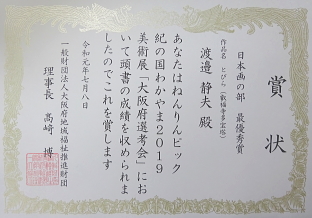 賞状
日本画の部 最優秀賞
作品名 とびら(叡福寺多宝塔)
渡邊 静夫 殿
あなたはねんりんピック
紀の国わかやま2019
美術展「大阪府選考会」にお
いて頭書の成績を収められま
したのでこれを賞します
令和元年七月八日
一般財団法人大阪府地域福祉推進財団
理事長 髙﨑 博